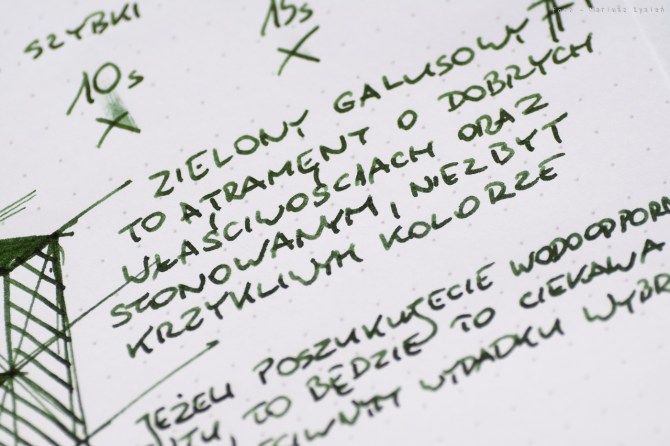 SZYBKI
10s
15s
ZIELONY GALUSOWY
TO ATRAMENT O DOBRYCH
WŁAŚCIWOŚCIACH ORAZ
STONOWANYM I NIEZBYT
KRZYKLIWYM KOLORZE
JEŻELI POSZUKUJECIE WODOODPORN
TO BĘDZIE TO CIEKAWA
WYPADKU WYBR